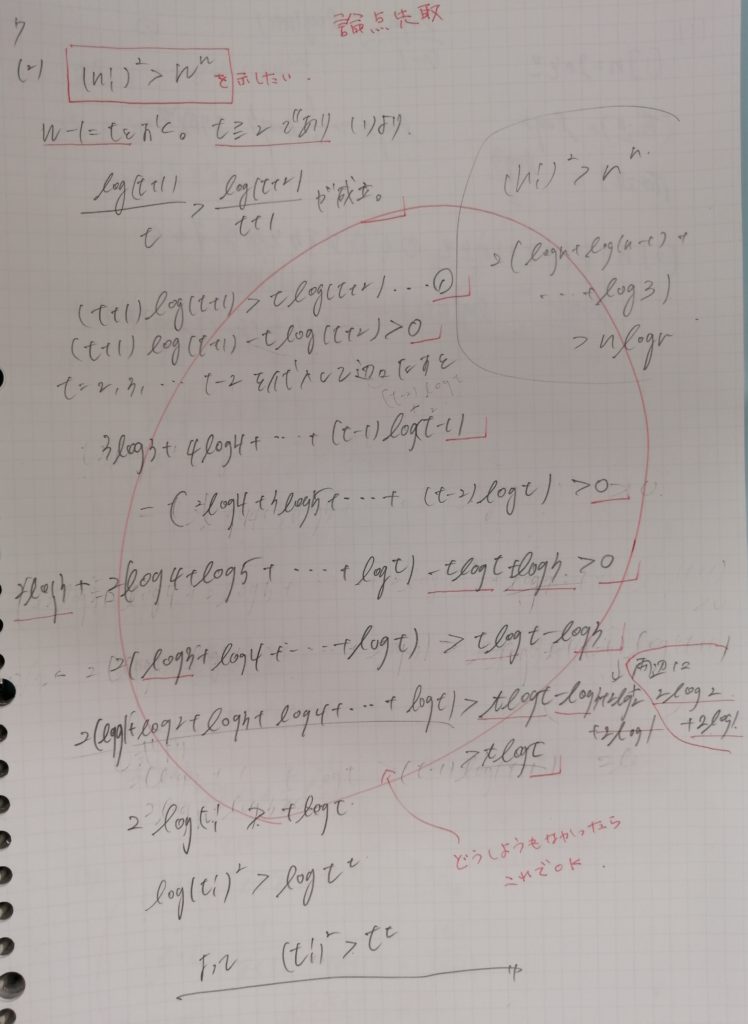 論点先取
7
(2) (n!)² > nⁿ を示したい.
n-1=tとおく。 t≧2であり (1)より.
log(t+1)/t > log(t+2)/t+1 が成立。
(n!)² > nⁿ.
2(logn+log(n-1)+
…+log3)
> nlogn
(t+1)log(t+1)>tlog(t+2)…①
(t+1)log(t+1)-tlog(t+2)>0
t=2,3,… t-2を代入して辺々たすと
3log3+4log4+…+(t-1)log(t-1)
-(2log4+3log5+…+(t-2)logt)>0
2log3+2(log4+log5+…+logt)-tlogt+log3>0
2(log3+log4+…+logt)>tlogt-log3
両辺に
2log2
+2log1
2(log1+log2+log3+log4+…+logt)>tlogt-log3+2log2
+2log1
>tlogt
2logt!>tlogt
どうしようもなかったら
これでOK.
log(t!)²>logtᵗ
よって (t!)²>tᵗ